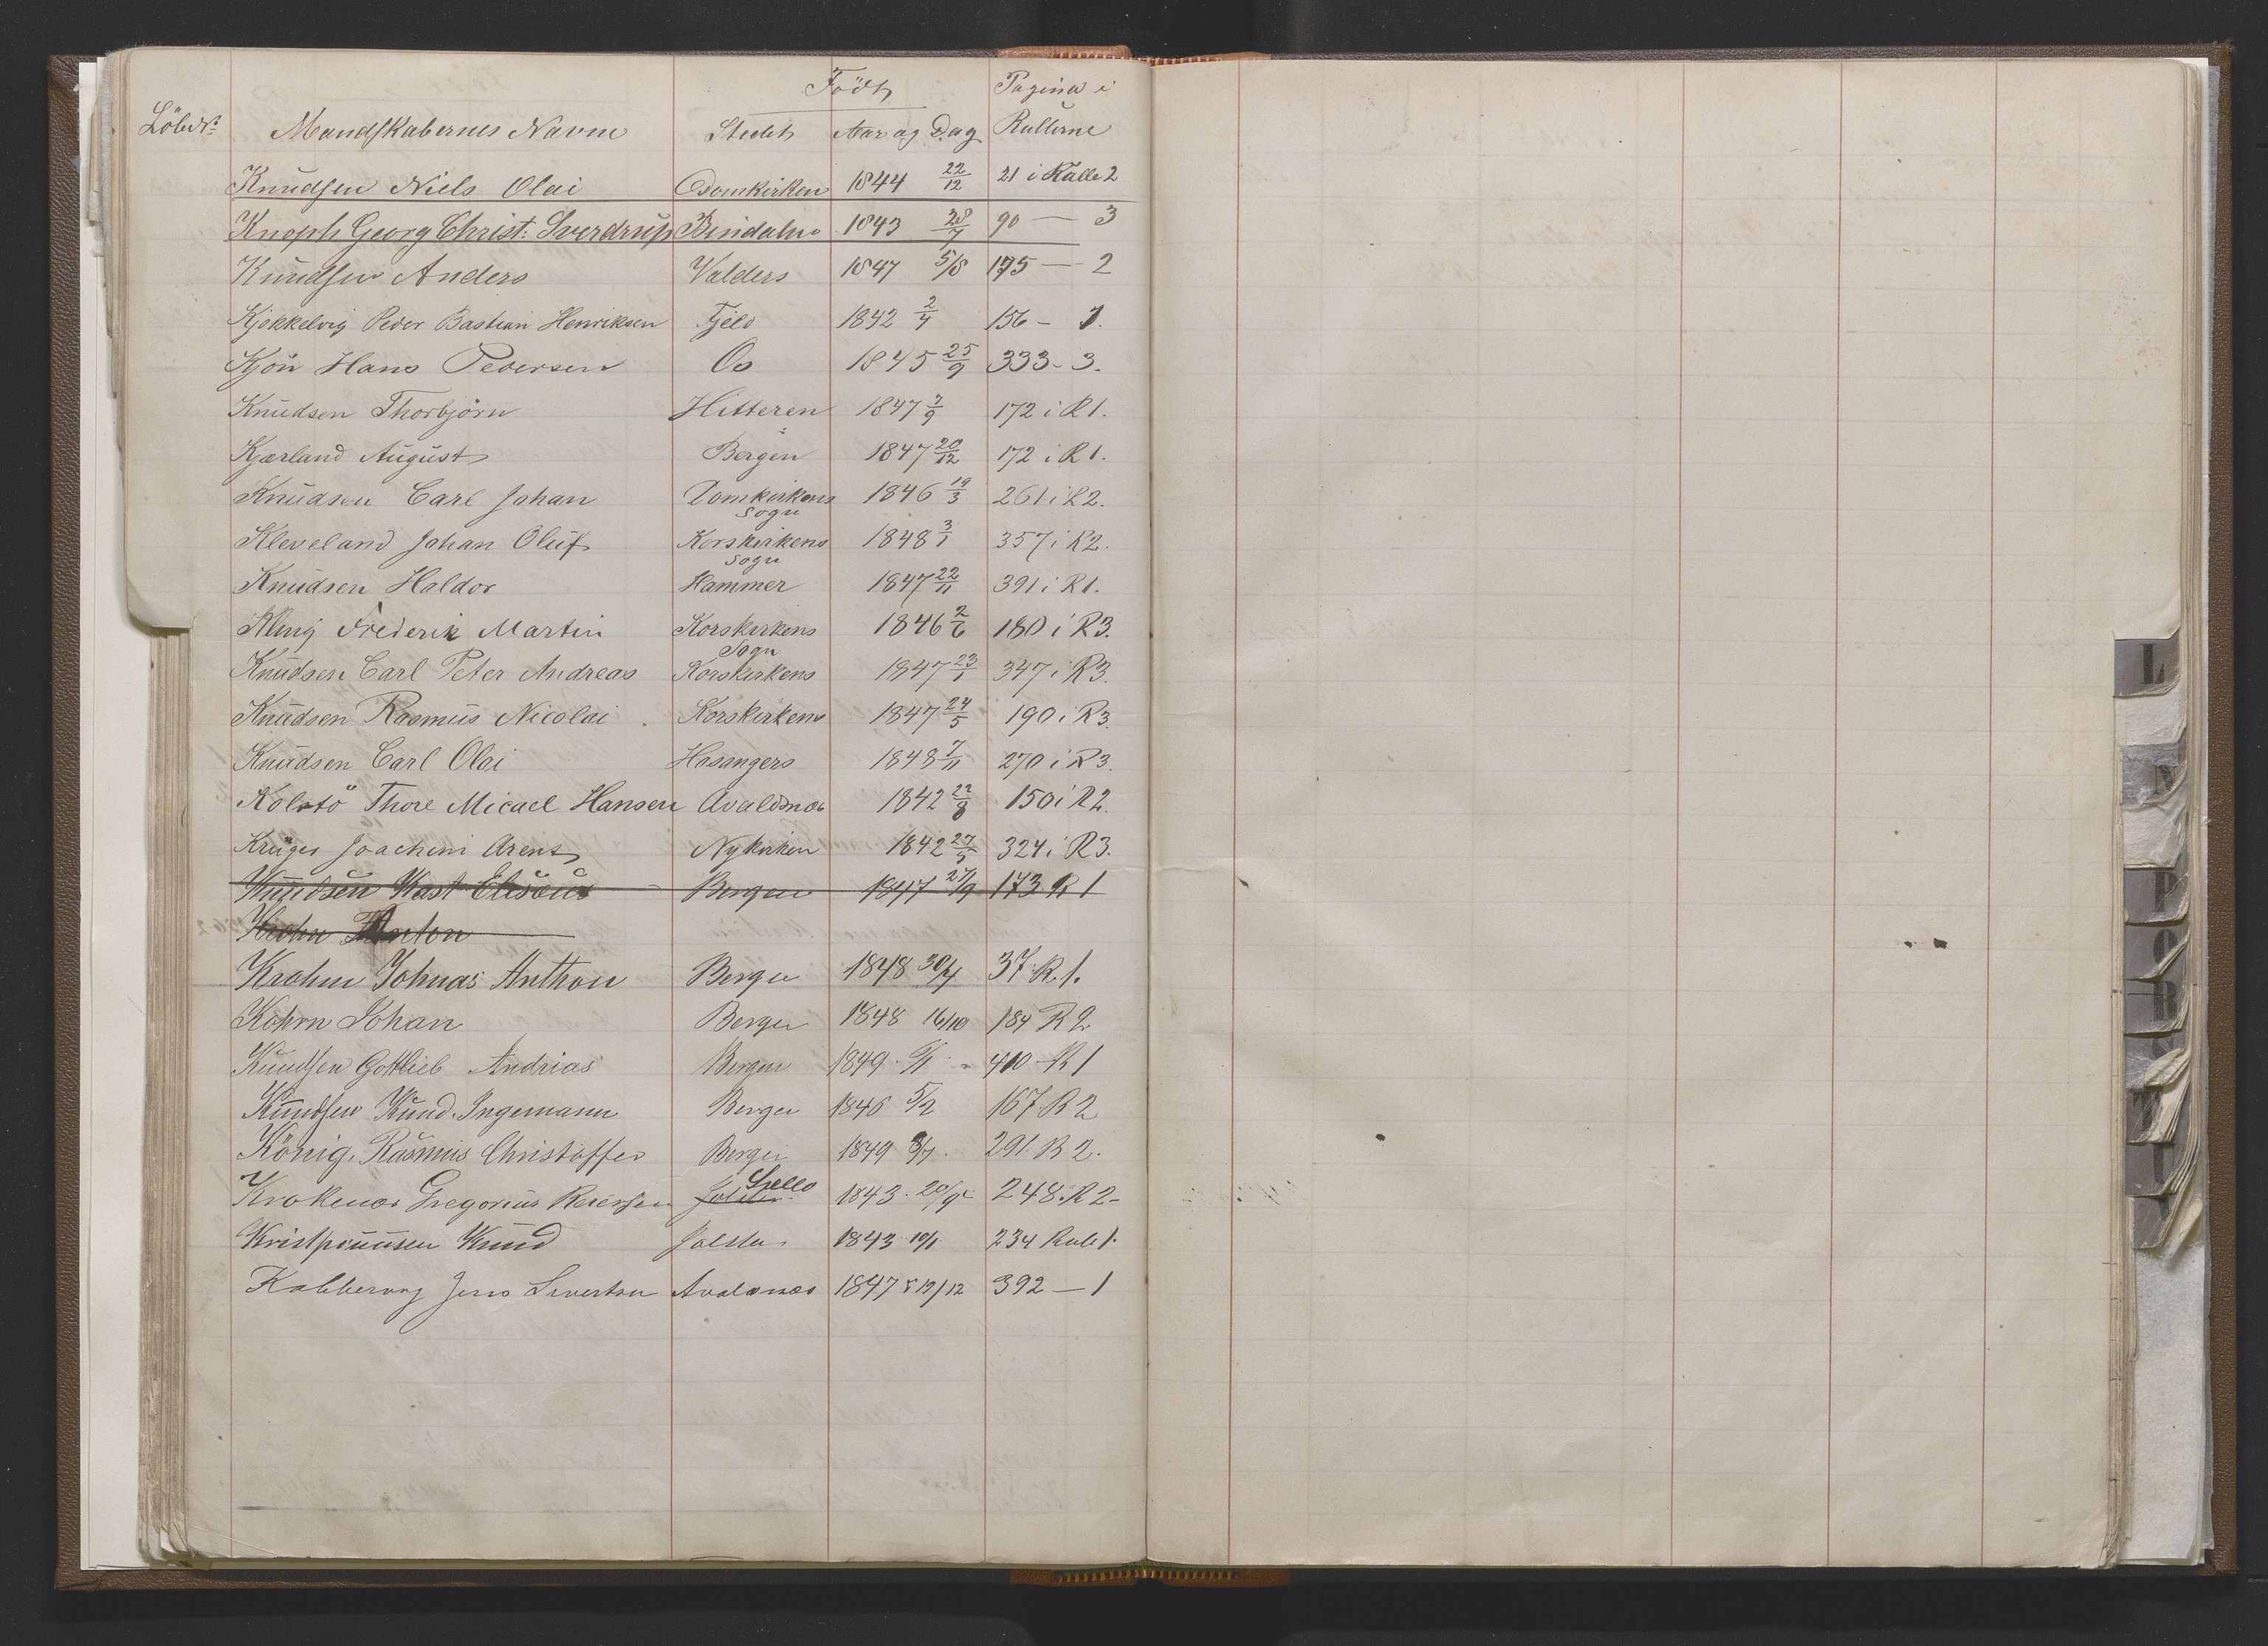 Födt Pagina i
Löbe Nr. Mandskabernes Navne Stedet Aar og Dag Rullerne
Knudsen Niels Olai Domkirken 1844 22/12 21 i Rulle 2
Knoph Georg Christ: Sverdrup Bindalen 1843 28/7 90 — 3
Knudsen Anders Valders 1847 5/8 175 — 2
Kjökkelvig Peder Bastian Henriksen Fjeld 1842 2/4 156 - 1.
Kjön Hans Pedersen Os 1845 25/9 333 - 3.
Knudsen Thorbjörn Hitteren 1847 7/9 172 i R 1.
Kjærland August Bergen 1847 20/12 172 i R 1.
Knudsen Carl Johan Domkirkens 1846 19/3 261 i R 2.
Sogn
Kleveland Johan Oluf Korskirkens 1848 3/1 357 i R 2.
Sogn
Knudsen Haldor Hammer 1847 22/11 391 i R 1.
Kling Frederik Martin Korskirkens 1846 2/6 180 i R 3.
Sogn
Knudsen Carl Peter Andreas Korskirkens 1847 23/1 347 i R 3.
Knudsen Rasmus Nicolai Korskirkens 1847 24/5 190 i R 3.
Knudsen Carl Olai Hosangers 1848 7/11 270 i R 3.
Kolstö Thore Micael Hansen Avaldsnæs 1842 22/8 150 i R 2.
Krüger Joachim Arent Nykirken 1842 27/5 324 i R 3.
Knudsen Elisæus Bergen 1847 27/9 173 R 1
Krohn Anton
Krohn Johnas Anthon Bergen 1848 30/4 37 R. 1.
Kohrn Johan Bergen 1848 16/10 184 R 2
Knudsen Gottlieb Andrias Bergen 1849 410 R 1
Knudsen Knud Ingemann Bergen 1846 5/2 167 R 2
König, Rasmus Christoffer Bergen 1849 291 R 2.
Krokenæs Gregorius Reiersen 1843 20/9 248 R 2-
Knud Jölster 1843 10/1 234 Rule 1.
Jens Sivertsen Avaldsnæs 1847 12/12 392 — 1
L
N
P
R